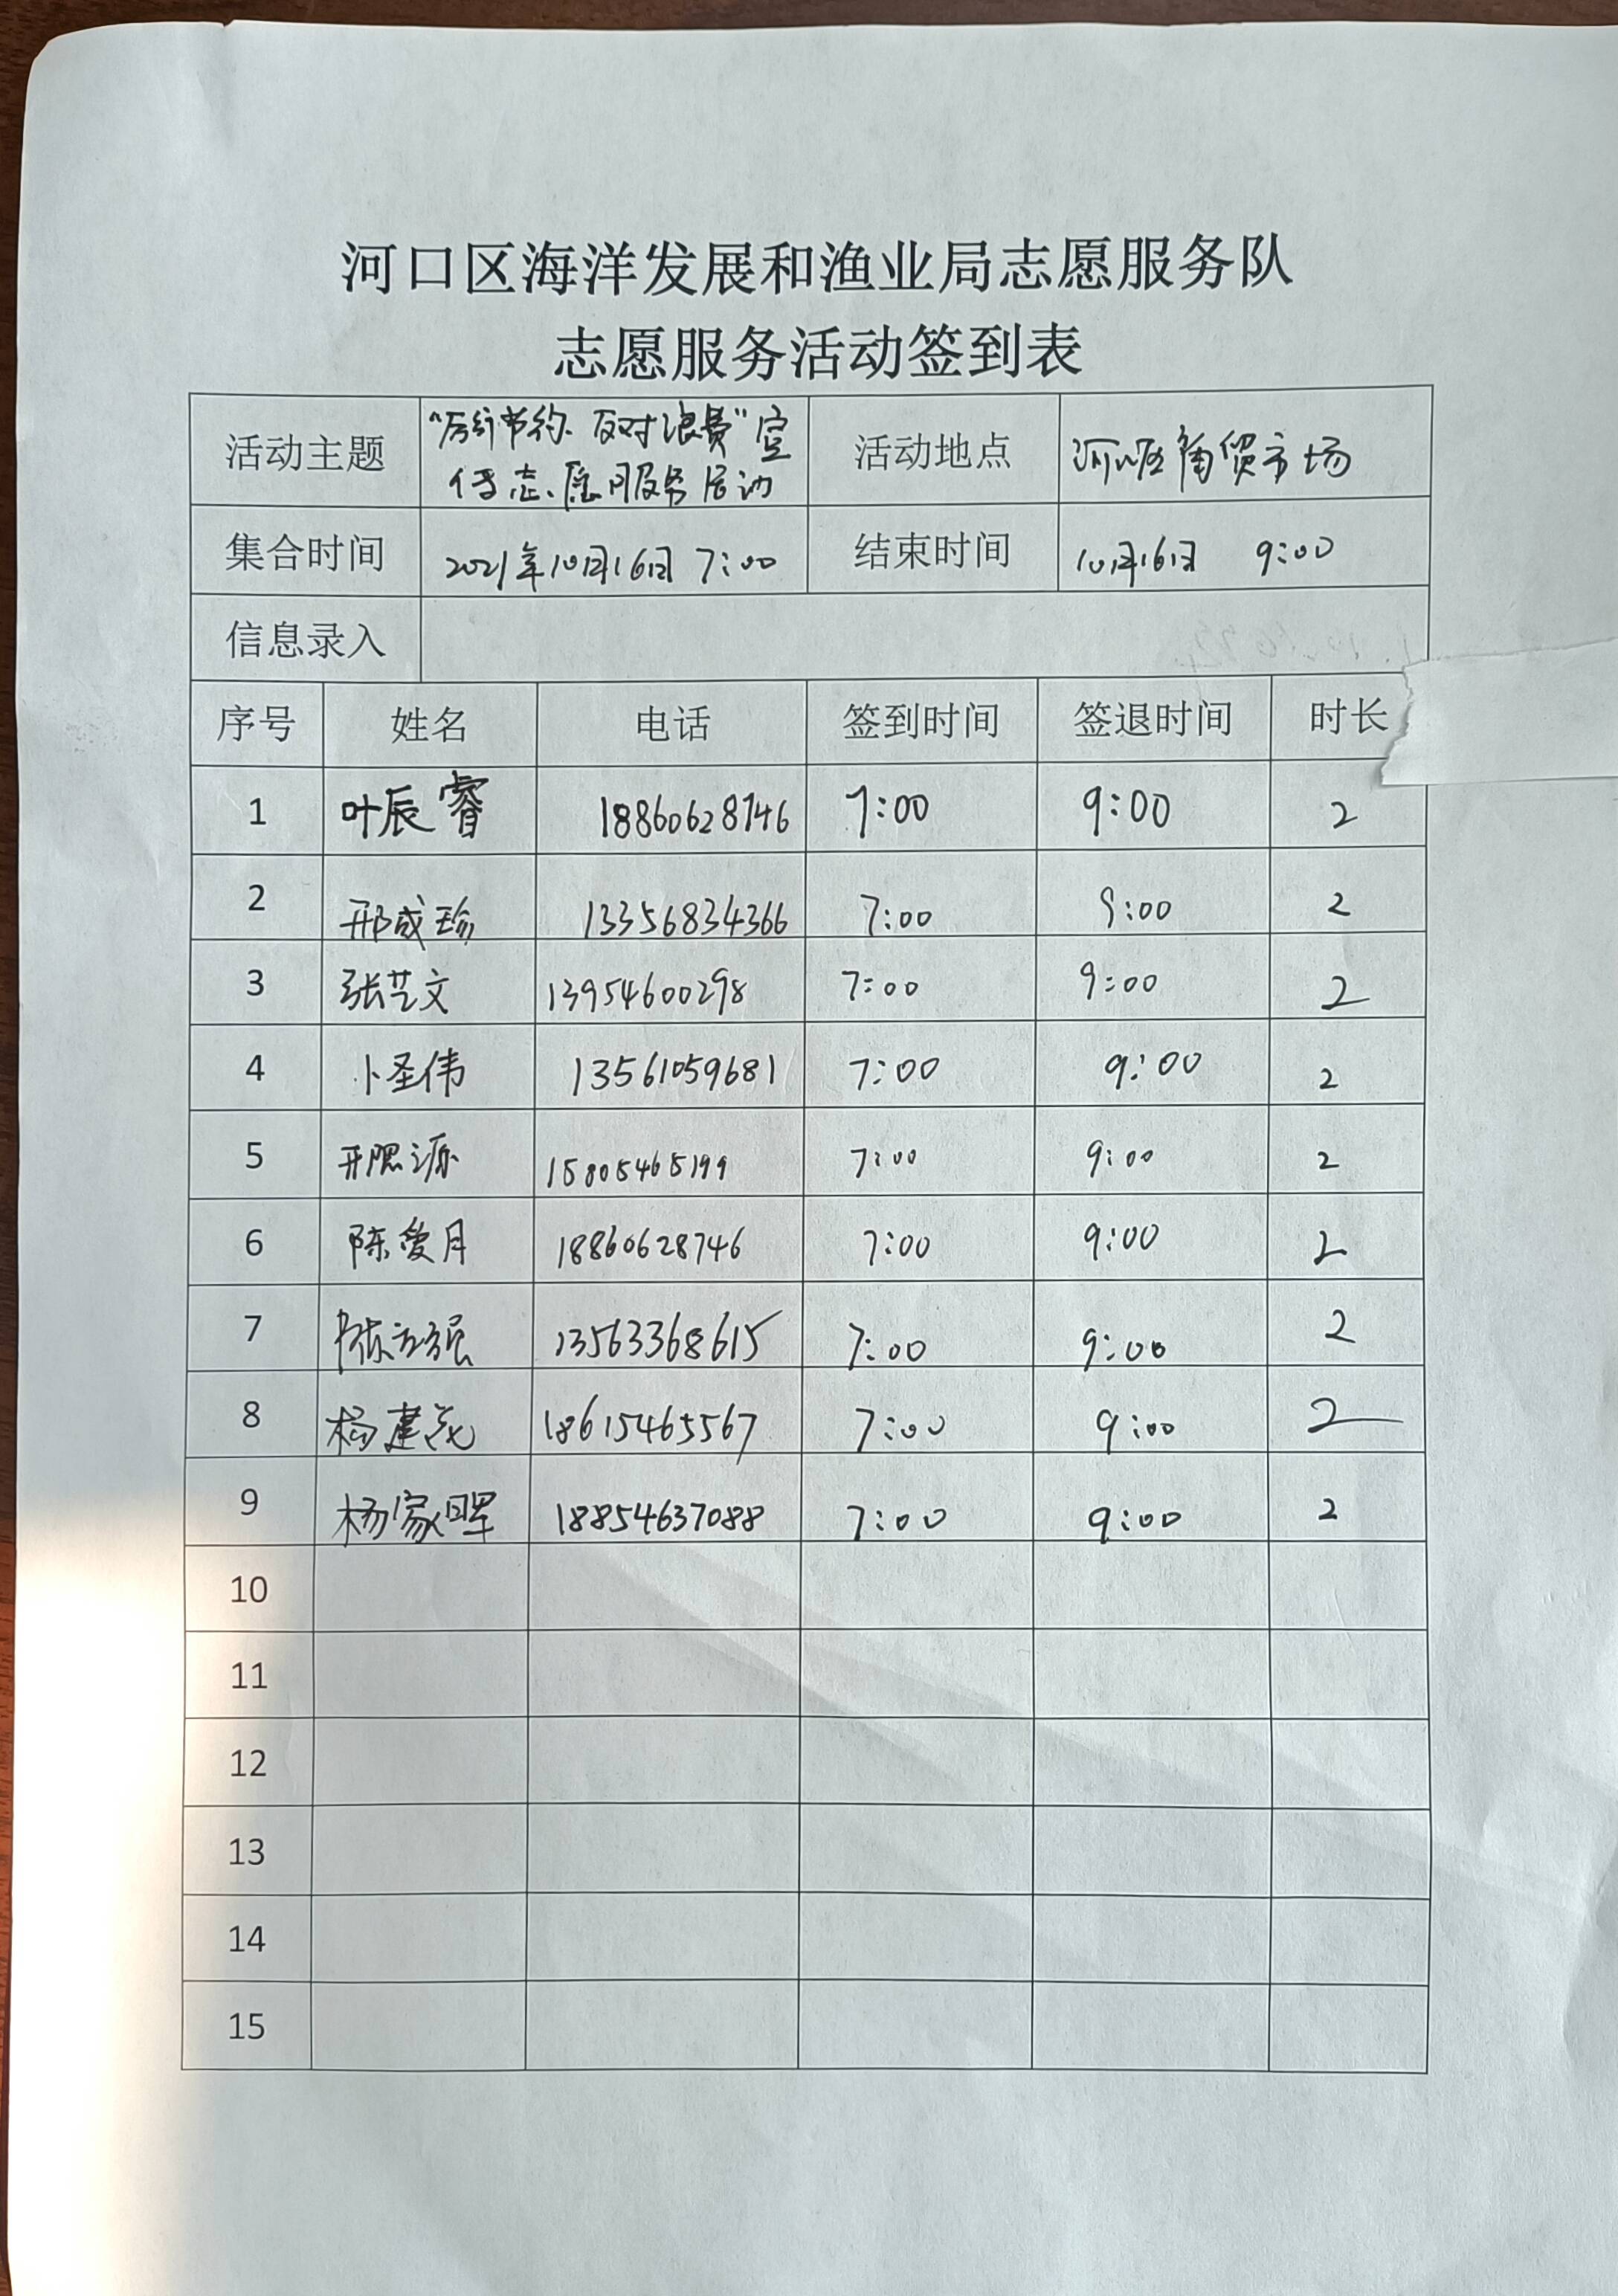 河口区海洋发展和渔业局志愿服务队
志愿服务活动签到表
活动主题 “厉行节约、反对浪费”宣传志愿服务活动 活动地点 河旺商贸市场
集合时间 2021年10月16日 7:00 结束时间 10月16日 9:00
信息录入
序号 姓名 电话 签到时间 签退时间 时长
1 叶辰睿 18860628746 7:00 9:00 2
2 邢成珍 13356834366 7:00 9:00 2
3 张艺文 13954600298 7:00 9:00 2
4 卜圣伟 13561059681 7:00 9:00 2
5 15805465199 7:00 9:00 2
6 陈爱月 18860628746 7:00 9:00 2
7 陈立强 13563368615 7:00 9:00 2
8 杨建 18615465567 7:00 9:00 2
9 杨家晖 18854637088 7:00 9:00 2
10
11
12
13
14
15